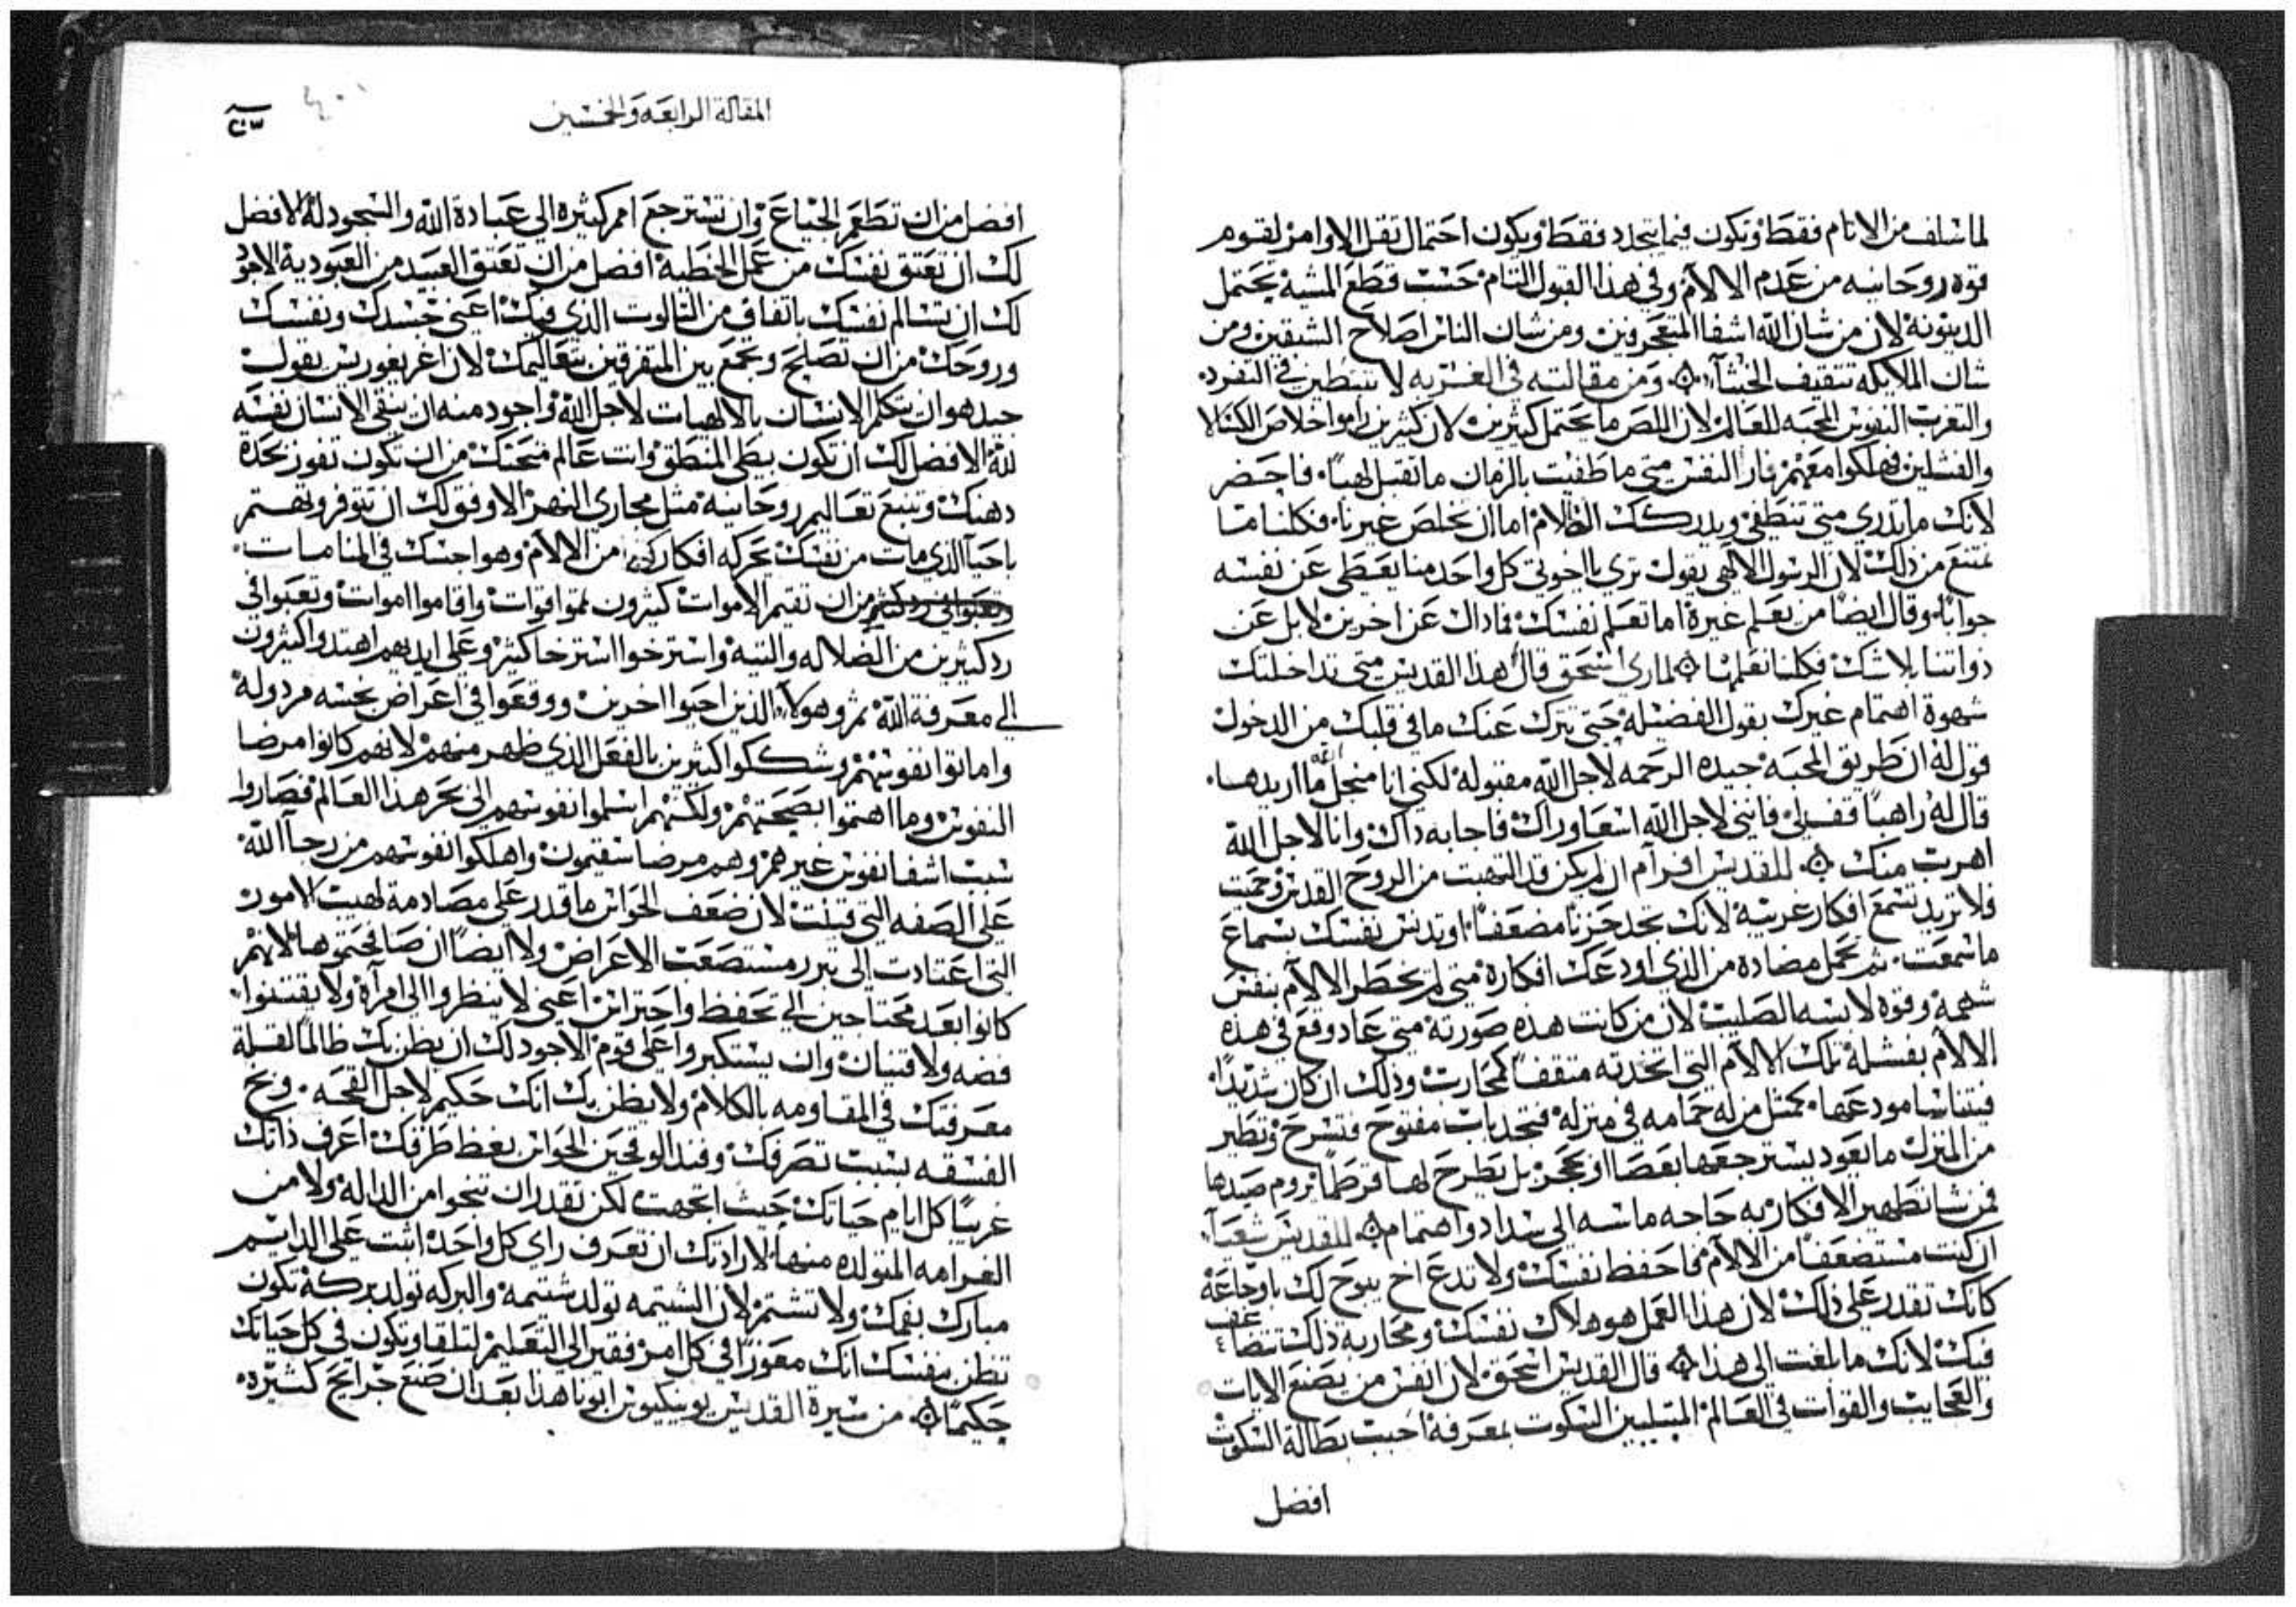 لما سلف من الاثام فقط وتكون فيما يتجدد فقط ويكون احتمال ثقل الاوامر لقوم
قوه روحانيه من عدم الالام وفي هذا القبول التام حسب قطع المشيه يحتمل
الدينونة لان من شان الله اشفا المتعجرفين ومن شان الناس اصلاح الشبقين ومن
شان الملايكه تثقيف الخبثآء ومن مقالته في الغربه لا تنتظر في التفرد
والتغرب النفوس المحبه للعالم لان اللص ما يحتمل كثيرين لان كثيرين راموا خلاص الكسالا
والفشلين فهلكوا معهم نار النفس متى ما طفيت بالزمان ما تقبل لهبا فاحضر
لانك ما تدري متى تنطفي ويدركك الظلام اما ان تخلص غيرنا فكلنا متا
نمتنع من ذلك لان الرسول الالهي يقول ترى يا اخوتي كل واحد منا يعطي عن نفسه
جوابا وقال ايضا من يعلم غيره اما تعلم نفسك فماذاك عن اخرين لا بل عن
ذواتنا بلا شك فكلنا نعلمها لماري اسحق قال هذا القديس متى تداخلتك
شهوة اهتمام غيرك بقول الفضيلة حتى تترك عنك ما في قلبك من الدخول
قول له ان طريق المحبة جيده الرحمه لاجل الله مقبولة لكني انا من اجل الله ما اريدها
قال له راهبا قف لي فانني لاجل الله اسعا وراك فاجابه ذاك وانا لاجل الله
اهرب منك للقديس افرآم ان لم تكن قد التهبت من الروح القدس وحميت
فلا تريد تسمع افكار غريبة لانك تجد حزنا مضعفا او تدنس نفسك بسماع
ما سمعت ثم تحمل مضاده من الذي اودعك افكاره متى لم يخطر الالام بنفس
شهمة وقوه لابسه الصليب لان من كانت هذه صورته متى عاد وقع في هذه
الالام بفشله تلك الالام التي اتخذته مثقفا كمحارب وذلك ان كان شديدا
فيتناسا مودعها كمثل من له حمامه في منزله فتجد باب مفتوح فتسرح وتطير
من المنزل ما يعود يسترجعها بعصا او بحجر بل يطرح لها قرطما يروم صيدها
فمن شا تطهير الافكار به حاجه ماسه الى سداد واهتمام للقديس شعيآء
ان كنت مستضعفا من الالام فاحفظ نفسك ولا تدع اخ يبوح لك باوجاعه
كانك تقدر على ذلك لان هذا العمل هو هلاك نفسك ومحاربة ذلك تتضاعف
فيك لانك ما بلغت الى هذا قال القديس اسحق لان انفس من يصنع الايات
والعجايب والقوات في العالم المتبليين السكوت بمعرفه احبب بطالة السكوت
افضل
المقالة الرابعه والخمسين
افضل من ان تطعم الجياع وان تسترجع امم كثيره الى عبادة الله والسجود له الافضل
لك ان تعتق نفسك من عمل الخطية افضل من ان تعتق العبيد من العبودية الاجود
لك ان تسالم نفسك باتفاق من الثالوث الذي فيك اعني جسدك ونفسك
وروحك من ان تصلح وتجمع بين المتفرقين بتعاليمك لان اغريغوريس يقول
جيد هو ان يتكلم الانسان بالالهيات لاجل الله واجود منه ان ينقي الانسان نفسه
لله الافضل لك ان تكون بطي المنطق وانت عالم متحنك من ان تكون تفوز بحدة
دهنك وتنبع تعاليم روحانيه مثل مجاري النهر الاوفق لك ان تتوفر وتهتم
باحيآ الذي مات من نفسك بحركه افكارك من الالام وهواجسك في المنامات
من ان تقيم الاموات كثيرون نموا قوات واقاموا اموات وتعبوا في
رد كثيرين من الضلاله والتيه واسترخوا استرخا كثير وعلى ايديهم اهتدوا كثيرون
الى معرفة الله ثم وهولآء الذين احيوا اخرين ووقعوا في اعراض نجسه مردوله
واماتوا نفوسهم وشككوا كثيرين بالفعل الذي ظهر منهم لانهم كانوا مرضا
النفوس وما اهتموا بصحتهم ولكنهم اسلموا نفوسهم الى بحر هذا العالم فصاروا
سبب اشفا نفوس غيرهم وهم مرضا سقيمون واهلكوا نفوسهم من رجآ الله
على الصفه التي قيلت لان ضعف الحواس ما قدر على مصادمة لهيب الامور
التي اعتادت الى تبرر مستصعب الاعراض ولا ايضا ان صافحتموها لانهم
كانوا بعد محتاجين الى تحفظ واحتراس اعني لا ينظروا الى امرآة ولا يقتنوا
فضه ولا قنيان وان يستكبروا على قوم الاجود لك ان يظن بك ظالما لقلة
معرفتك في المقاومه بالكلام ولا يظن بك انك حكيم لاجل القحه وبخ
الفسقه بسبب تصرفك وفند الوقحين الحواس بغظ طرفك اعرف ذاتك
غريبا كل ايام حياتك حيث اتجهت لكن تقدر ان تنجوا من الداله ولا من
الغرامه المتولده منها لارادتك ان تعرف راي كل واحد اثبت على الدايم
مبارك بفمك ولا تشتم لان الشتيمه تولد شتيمه والبركه تولد بركة تكون
تظن بنفسك انك معوزا في كل امر فقير الى التعليم لتلقا وتكون في كل حياتك
حكيما من سيرة القديس ابونا هذا بعد ان صنع جرايح كثيره